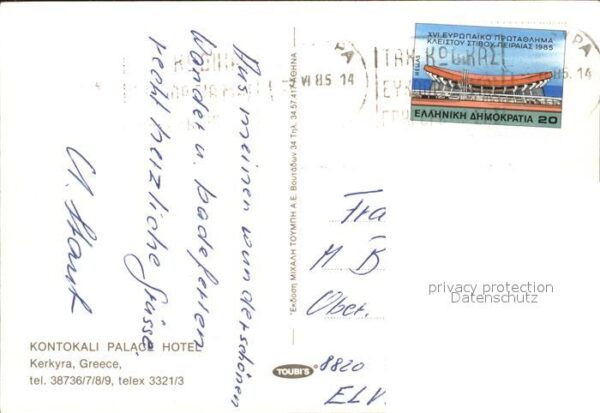 Aus meinen wunderschönen
Wander u. Badeferien
recht herzliche Grüsse.
KONTOKALI PALACE HOTEL
Kerkyra, Greece,
tel. 38736/7/8/9, telex 3321/3
Έκδοση ΜΙΧΑΛΗ ΤΟΥΜΠΗ Α.Ε. Βουτάδων 34 Τηλ. 34.57.417 ΑΘΗΝΑ
TOUBI'S
VI 85 14
XVI ΕΥΡΩΠΑΪΚΟ ΠΡΩΤΑΘΛΗΜΑ
ΚΛΕΙΣΤΟΥ ΣΤΙΒΟΥ, ΠΕΙΡΑΙΑΣ 1985
HELLAS
ΕΛΛΗΝΙΚΗ ΔΗΜΟΚΡΑΤΙΑ 20
85 14
Fra
M B
Ober.
8820
privacy protection
Datenschutz